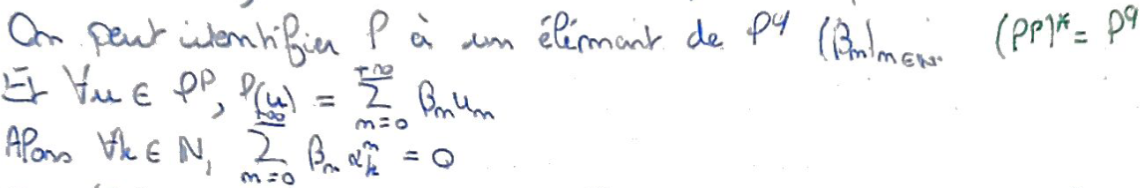 On peut identifier l à un élément de l^q (β_n)_{n∈ℕ}. (l^p)* = l^q
Et ∀u ∈ l^p, l(u) = \sum_{n=0}^{+∞} β_n u_n
Alors ∀k ∈ ℕ, \sum_{n=0}^{+∞} β_n α_k^n = 0